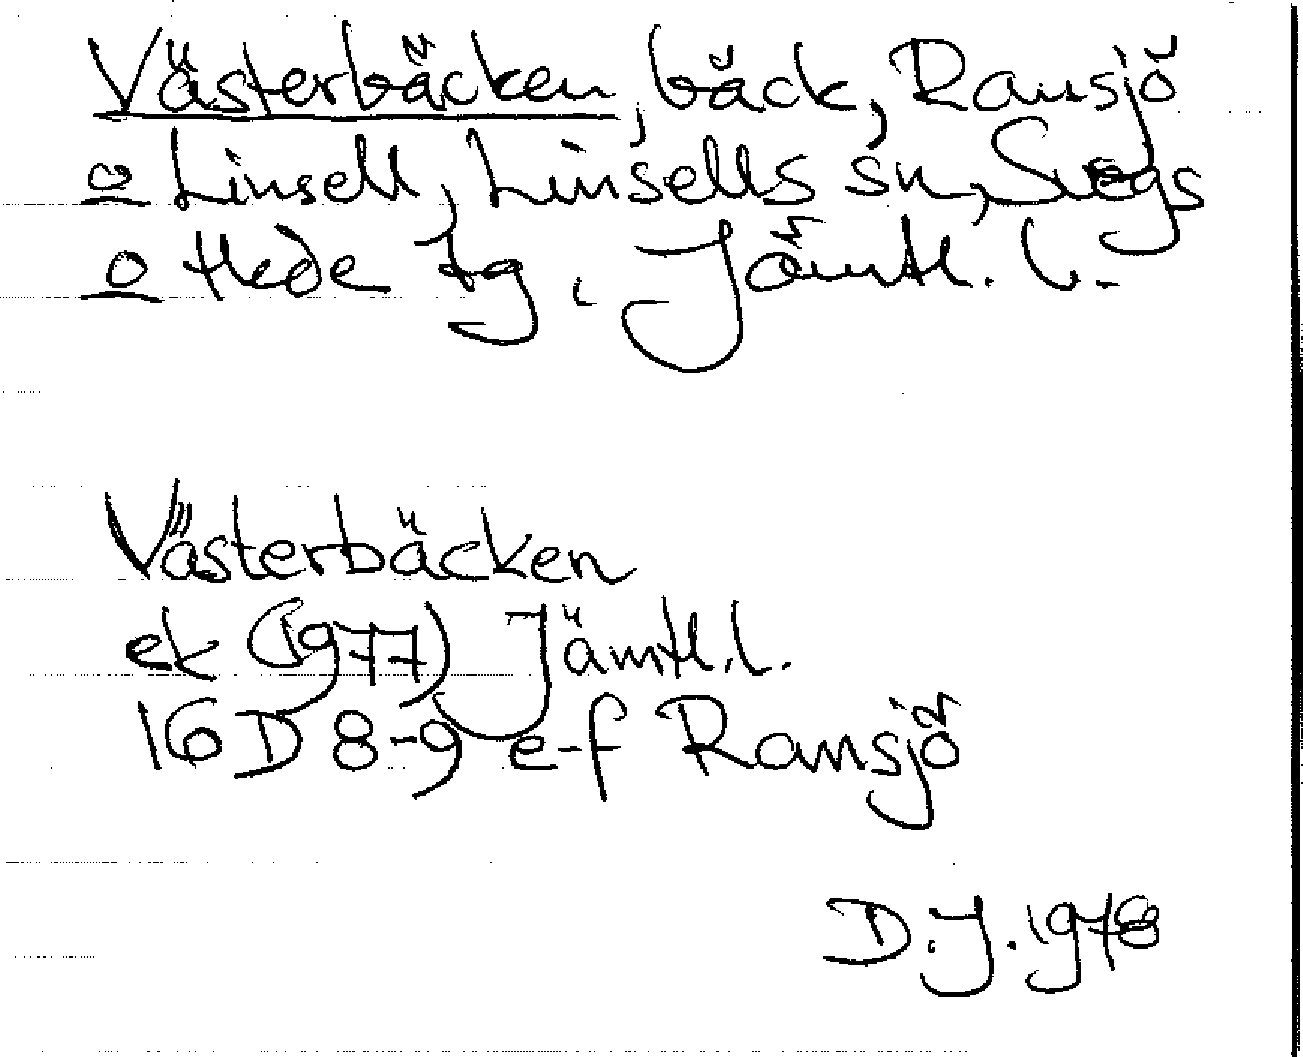 Västerbäcken, bäck, Ransjö
o Linsell, Linsells sn, Svegs
o Hede tg, Jämtl. l.
Västerbäcken
ek (1977) Jämtl. l.
16 D 8-9 e-f Ransjö
D. J. 1978